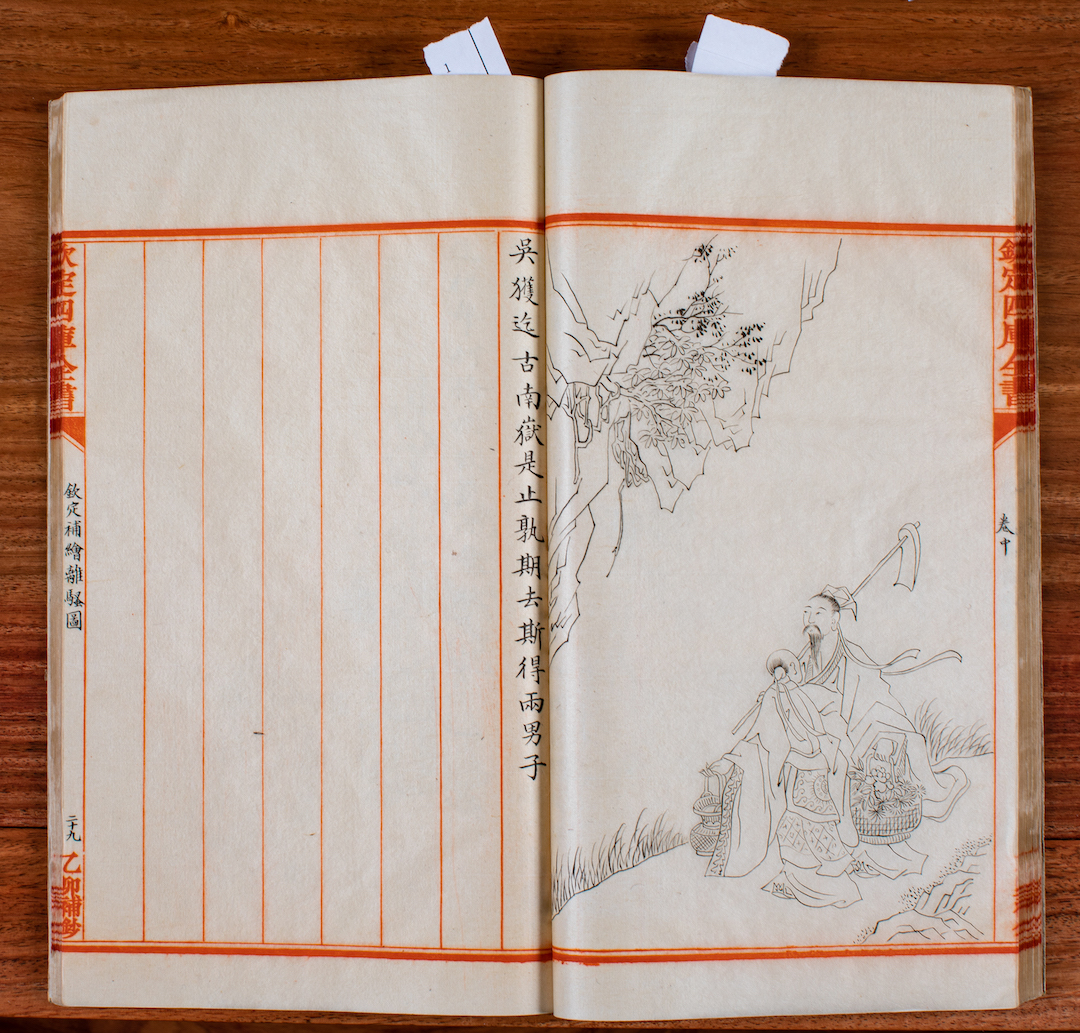 欽定四庫全書
卷中
吳獲迄古南嶽是止孰期去斯得兩男子
欽定四庫全書
欽定補繪離騷圖
二十九
乙卯補鈔